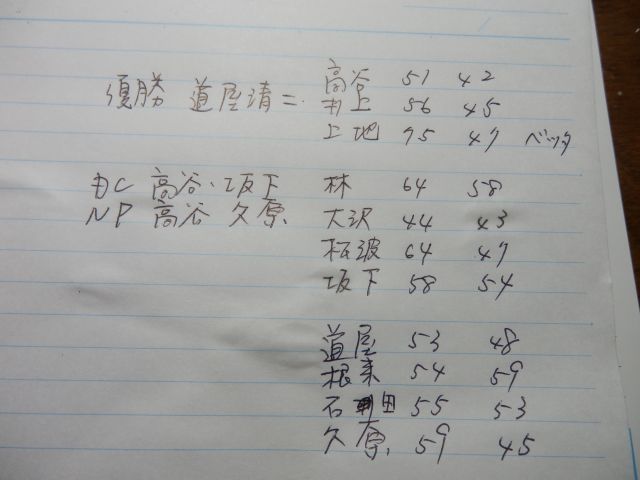 高谷 51 42
優勝 道屋清二 村上 56 45
上地 75 47 ベッタ
DC 高谷・坂下 林 64 58
NP 高谷 久原 大沢 44 43
松波 64 47
坂下 58 54
道屋 53 48
根来 54 59
石田 55 53
久原 59 45